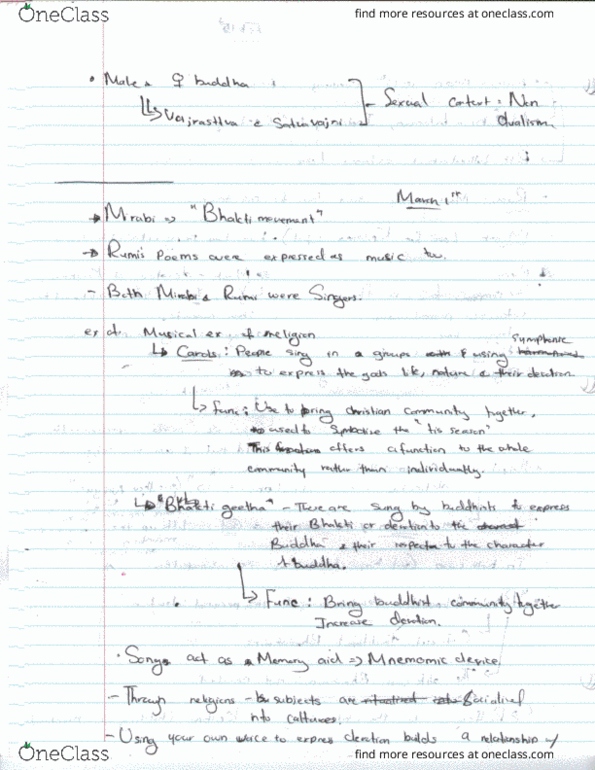 OneClass
find more resources at oneclass.com
• Male & ♀ buddha
Sexual context = Non
dualism
March 1st
→ Mirabi => "Bhakti movement"
→ Rumi's Poems were expressed as music too.
- Both Mirabi & Rumi were Singers.
ex of. Musical ex. of religion
↳ Carols : People sing in a groups & using symphonic
to express the gods life, nature & their devotion
↳ Func : Use to bring christian community together.
used to symbolise the "tis season"
This offers a function to the whole
community rather than individually.
↳ "Bhakti geetha" - There are sung by buddhists to express
their Bhakti or devotion to the
Buddha & their respect to the character
of buddha.
↳ Func : Bring buddhist community together
Increase devotion.
• Songs act as a Memory aid => Mnemomic device
- Through religions - subjects are socialised
into cultures.
- Using your own voice to express devotion builds a relationship w/
OneClass
find more resources at oneclass.com